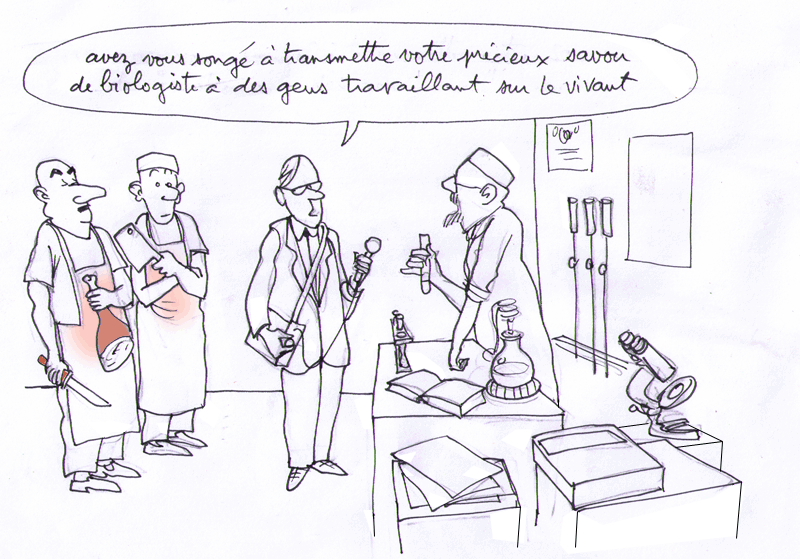 avez vous songé à transmettre votre précieux savoir
de biologiste à des gens travaillant sur le vivant